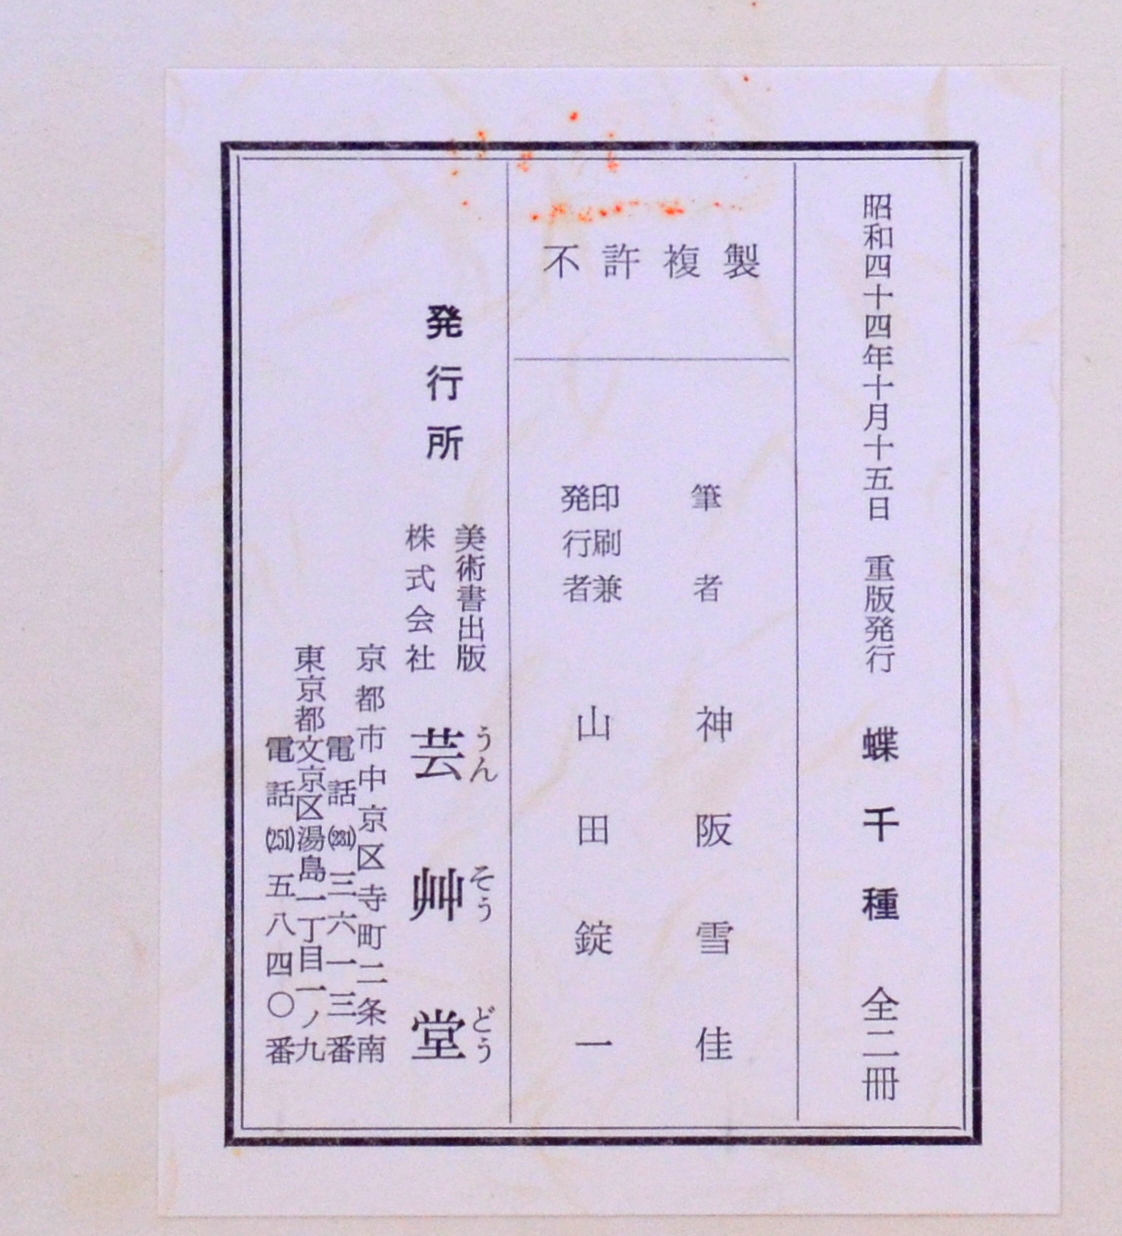 昭和四十四年十月十五日 重版発行 蝶千種 全二冊
不許複製
筆者 神阪雪佳
印刷兼
発行者 山田錠一
発行所
美術書出版
株式会社
うん そう どう
芸艸堂
京都市中京区寺町二条南
電話(231)三六一三番
東京都文京区湯島一丁目一ノ九
電話(251)五八四〇番